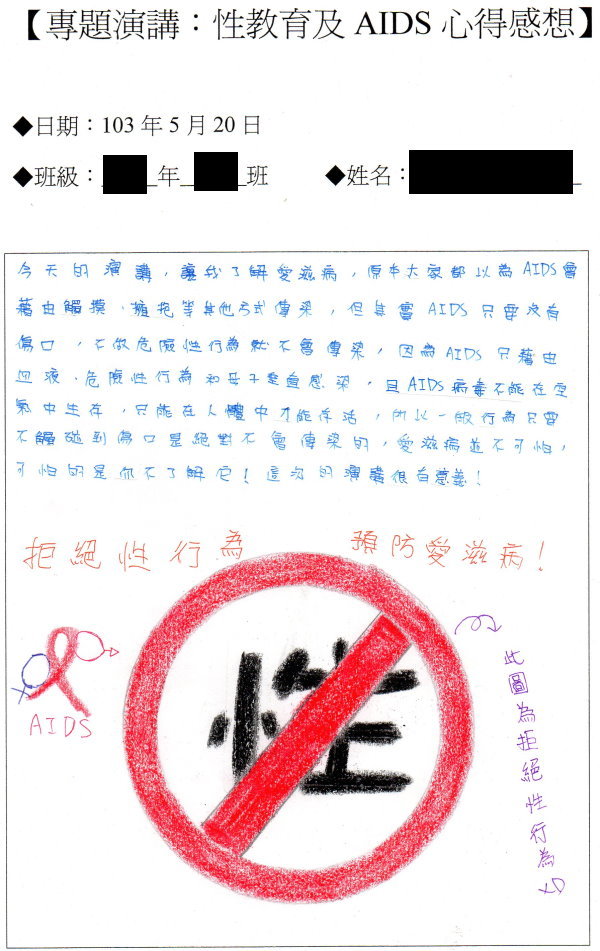 【專題演講：性教育及 AIDS 心得感想】
◆日期：103 年 5 月 20 日
◆班級：＿年＿班 ◆姓名：
今天的演講，讓我了解愛滋病，原本大家都以為AIDS會
藉由觸摸、擁抱等其他方式傳染，但其實AIDS只要沒有
傷口，不做危險性行為就不會傳染，因為AIDS只藉由
血液、危險性行為和母子垂直感染，且AIDS病毒不能在空
氣中生存，只能在人體中才能存活，所以一般行為只要
不觸碰到傷口是絕對不會傳染的，愛滋病並不可怕，
可怕的是你不了解它！這次的演講很有意義！
拒絕性行為 預防愛滋病！
AIDS
性
此圖為拒絕性行為XD